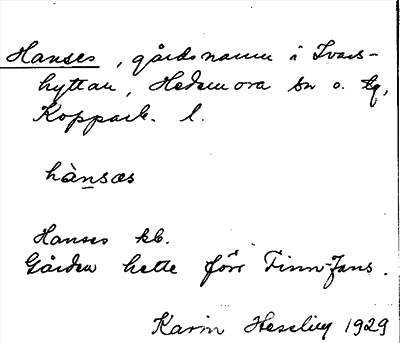 Hanses, gårdsnamn i Ivars-
hyttan, Hedemora sn o. tg,
Kopparb. l.
hànsæs
Hanses kb.
Gården hette förr Finn-Jans.
Karin 1929